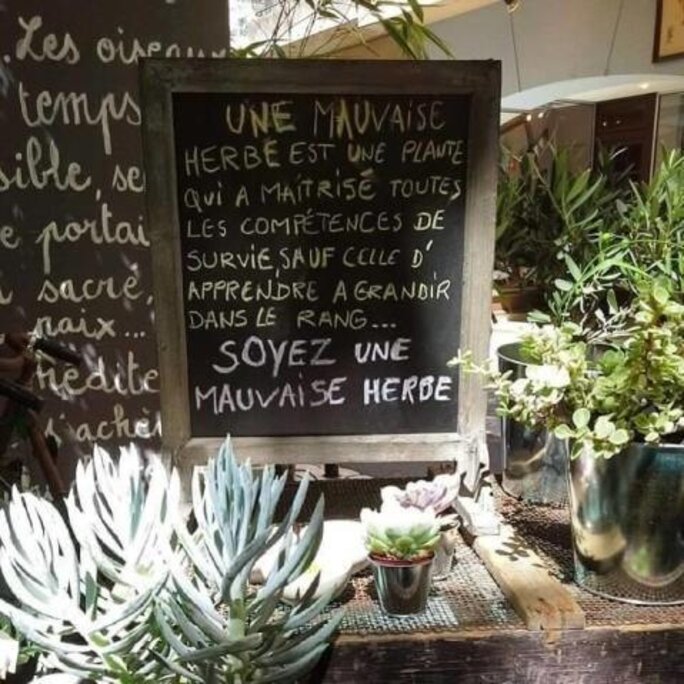 Les oiseaux
temps
sible, se
e portai
sacré,
paix...
médite
s'achè
UNE MAUVAISE
HERBE EST UNE PLANTE
QUI A MAÎTRISÉ TOUTES
LES COMPÉTENCES DE
SURVIE, SAUF CELLE D'
APPRENDRE A GRANDIR
DANS LE RANG...
SOYEZ UNE
MAUVAISE HERBE